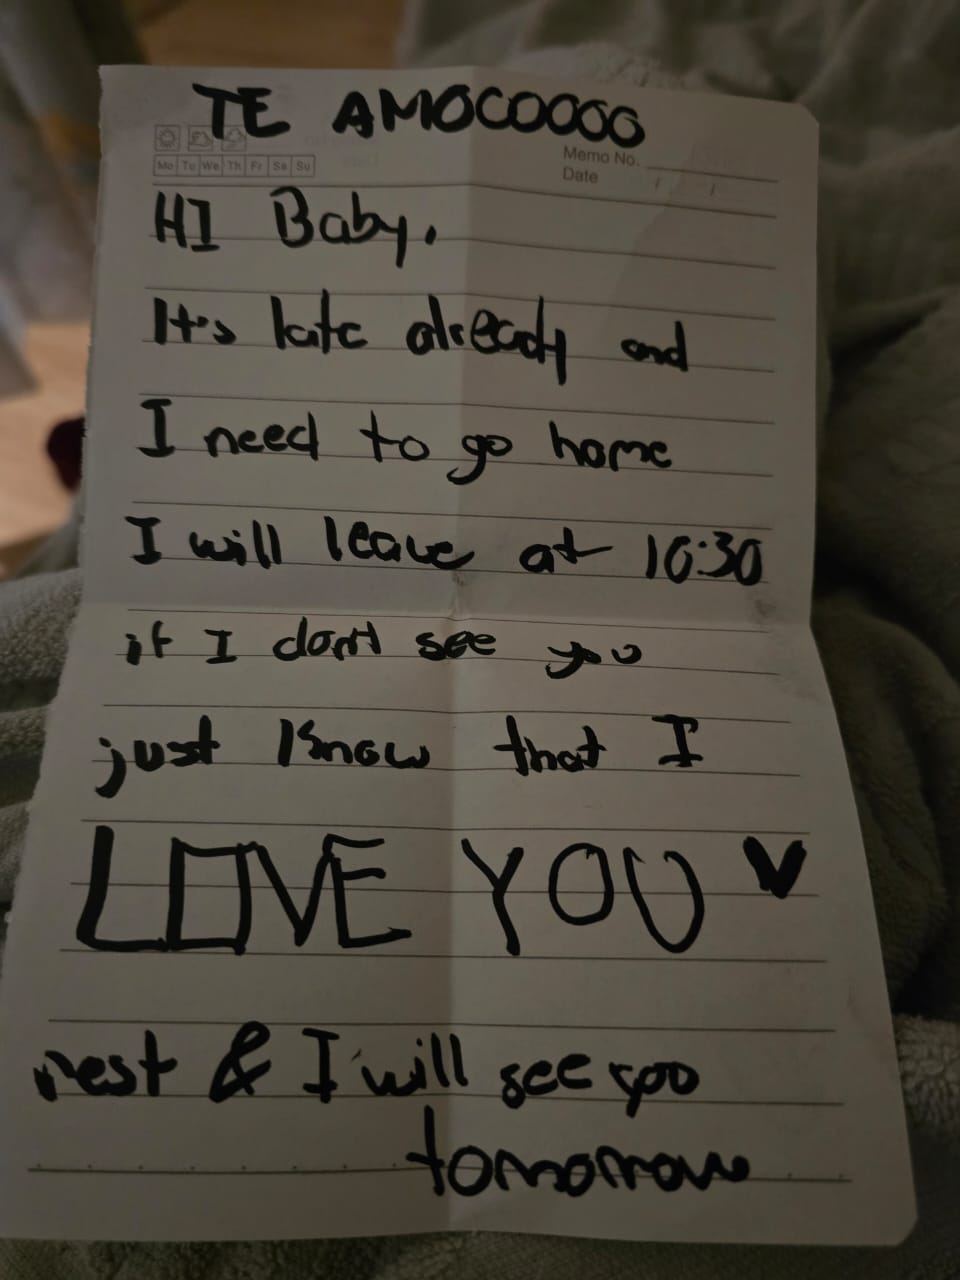 TE AMOCOOOO
Mo Tu We Th Fr Sa Su
Memo No.
Date / /
HI Baby,
It's late already and
I need to go home
I will leave at 10:30
if I don't see you
just know that I
LOVE YOU ♥
rest & I will see you
tomorrow